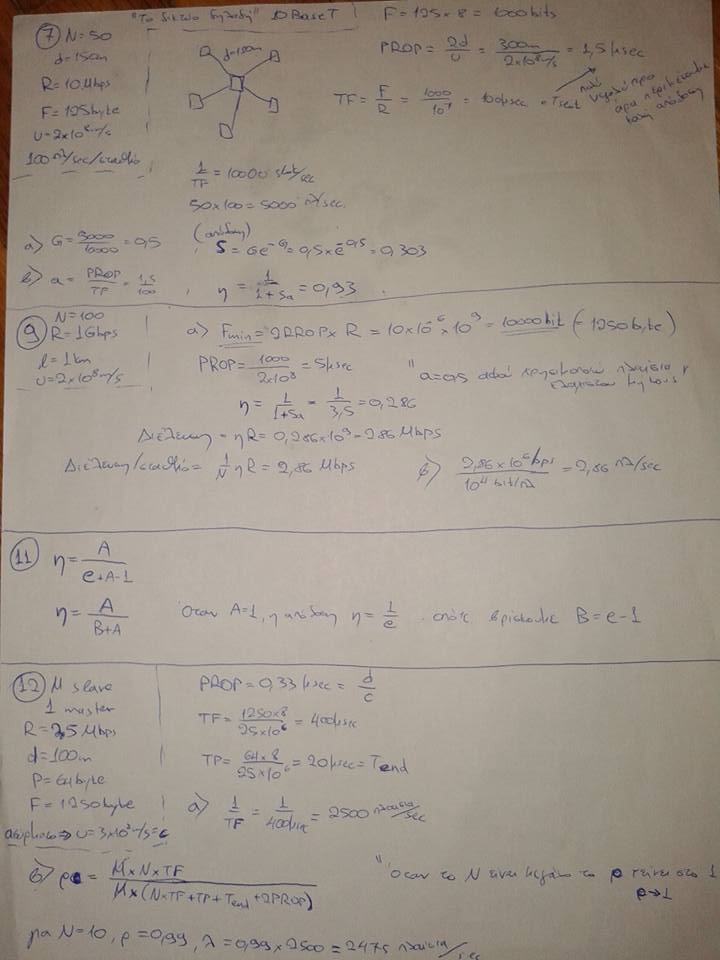 "Το δίκτυο δηλαδή" 10BaseT
F = 125 × 8 = 1000 bits
7 N = 50
d = 150m
R = 10 Mbps
F = 125 byte
υ = 2×10⁸ m/s
100 πλ/sec/σταθμό
d=150m
PROP = 2d/υ = 300m/2×10⁸ m/s = 1,5 μsec
TF = F/R = 1000/10⁷ = 100 μsec = Tsent
πολύ
άρα περιμένουμε
καλή απόδοση
1/TF = 10000 slot/sec
50×100 = 5000 πλ/sec
α) G = 5000/10000 = 0,5 , (απόδοση) S = Ge^-G = 0,5×e^-0,5 = 0,303
β) a = PROP/TP = 1,5/100 , η = 1/1+5a = 0,93
9 N = 100
R = 1Gbps
l = 1km
υ = 2×10⁸ m/s
α) Fmin = 2PROP × R = 10×10⁻⁶ × 10⁹ = 10000 bit (= 1250 byte)
PROP = 1000/2×10⁸ = 5μsec
"a = 0,5 αφού χρησιμοποιώ πλαίσια
ελαχίστου μήκους
η = 1/1+5a = 1/3,5 = 0,286
Διέλευση = ηR = 0,286×10⁹ = 286 Mbps
Διέλευση/σταθμό = 1/N ηR = 2,86 Mbps
β) 2,86 × 10⁶ bps/10⁴ bit/πλ = 2,86 πλ/sec
11 η = A/e+A-1
η = A/B+A
όταν A=1, η απόδοση η = 1/e . οπότε βρίσκουμε B = e-1
12 M slave
1 master
R = 25 Mbps
d = 100m
P = 64byte
F = 1250byte
ασύρματο ⇒ υ = 3×10⁸ m/s = c
PROP = 0,33 μsec = d/c
TF = 1250×8/25×10⁶ = 400μsec
TP = 64×8/25×10⁶ = 20μsec = Tend
α) 1/TF = 1/400μs = 2500 πλαίσια/sec
β) ρ = M×N×TF/M×(N×TF+TP+Tend+2PROP)
"όταν το N είναι μεγάλο το ρ τείνει στο 1
ρ→1
για N=10, ρ=0,99, λ=0,99×2500 = 2475 πλαίσια/sec